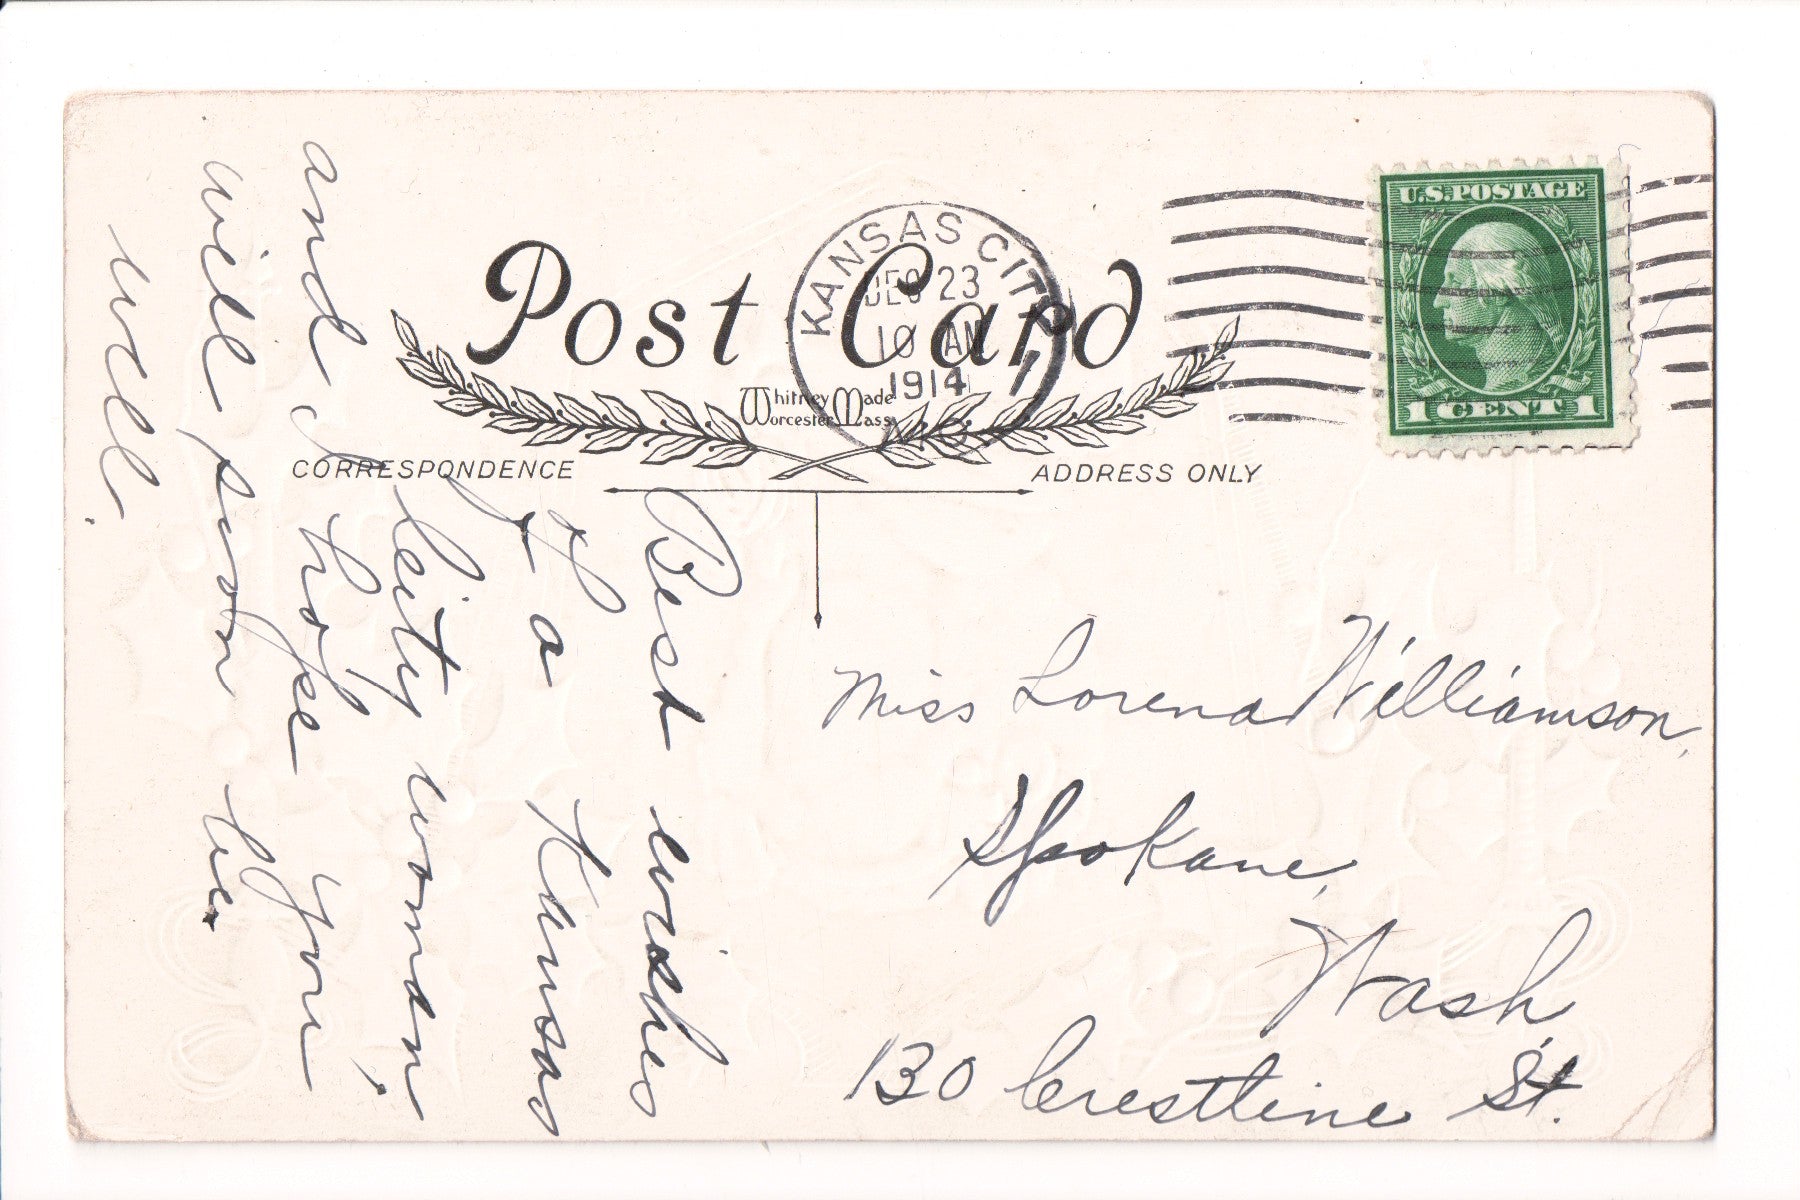 Post Card
Whitney Made
Worcester Mass
CORRESPONDENCE
ADDRESS ONLY
KANSAS CITY
DEC 23
10 AM
1914
MO.
U.S. POSTAGE
1 CENT 1
Best wishes
of a Kansas
City woman,
and I hope you
will soon be
well.
Miss Lorena Williamson,
Spokane,
Wash.
130 Crestline St.